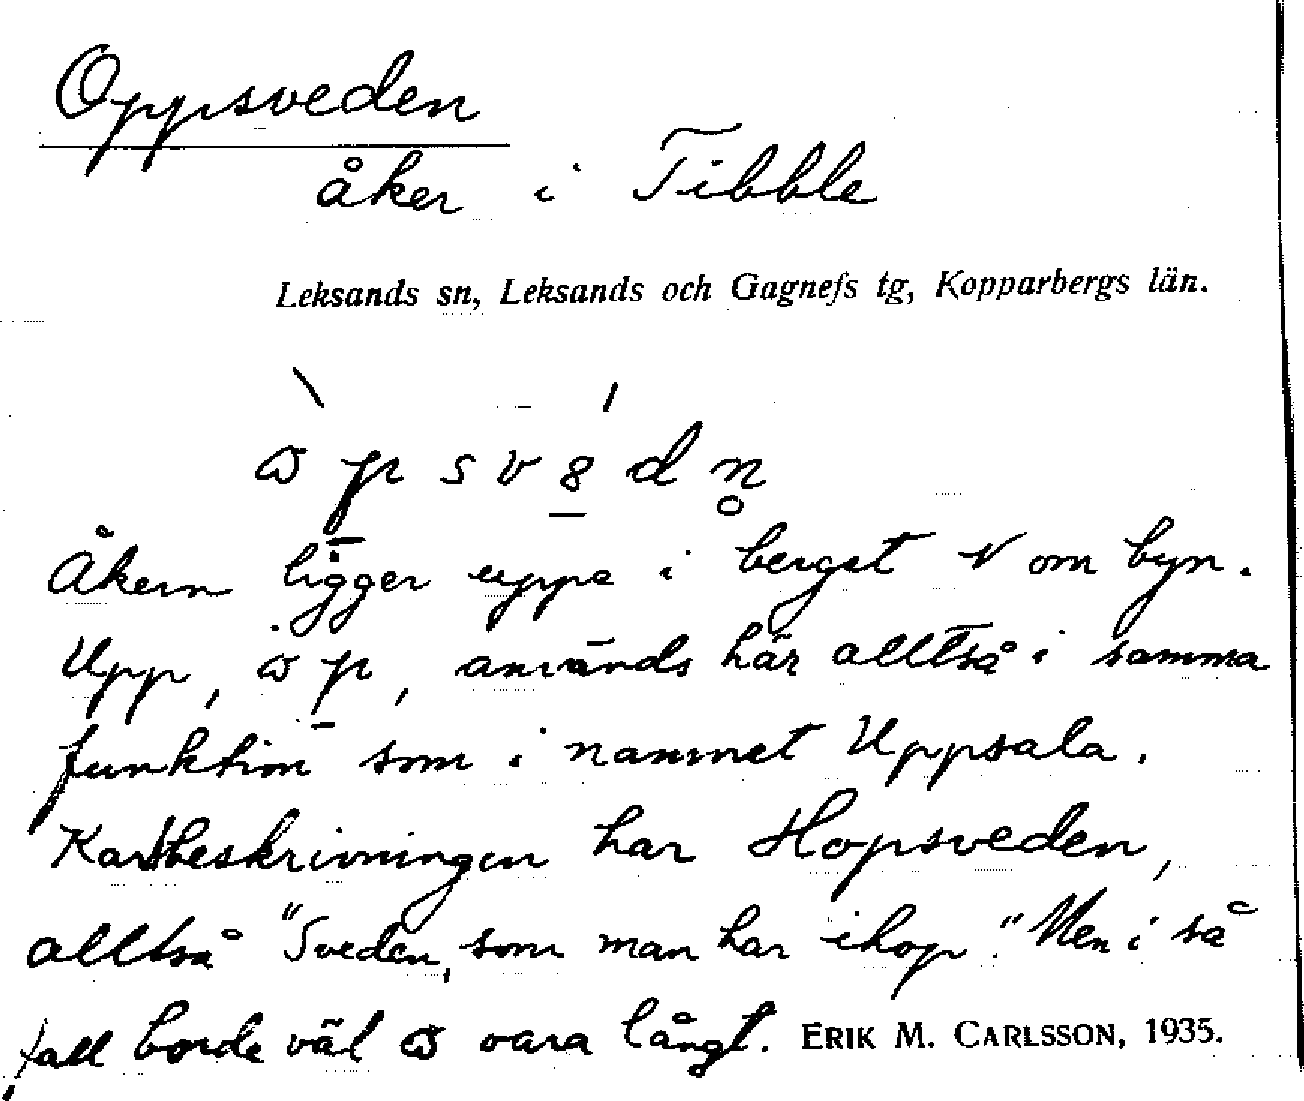 Oppsveden
åker i Tibble
Leksands sn, Leksands och Gagnefs tg, Kopparbergs län.
Åkern ligger uppe i berget N om byn.
Upp, används här alltså i samma
funktion som i namnet Uppsala.
Kartbeskrivningen har Hopsveden,
alltså "Sveden, som man har ihop". Men i så
fall borde väl vara långt. ERIK M. CARLSSON, 1935.